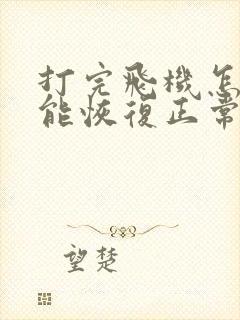 打完飛機怎
能恢復正常
望楚